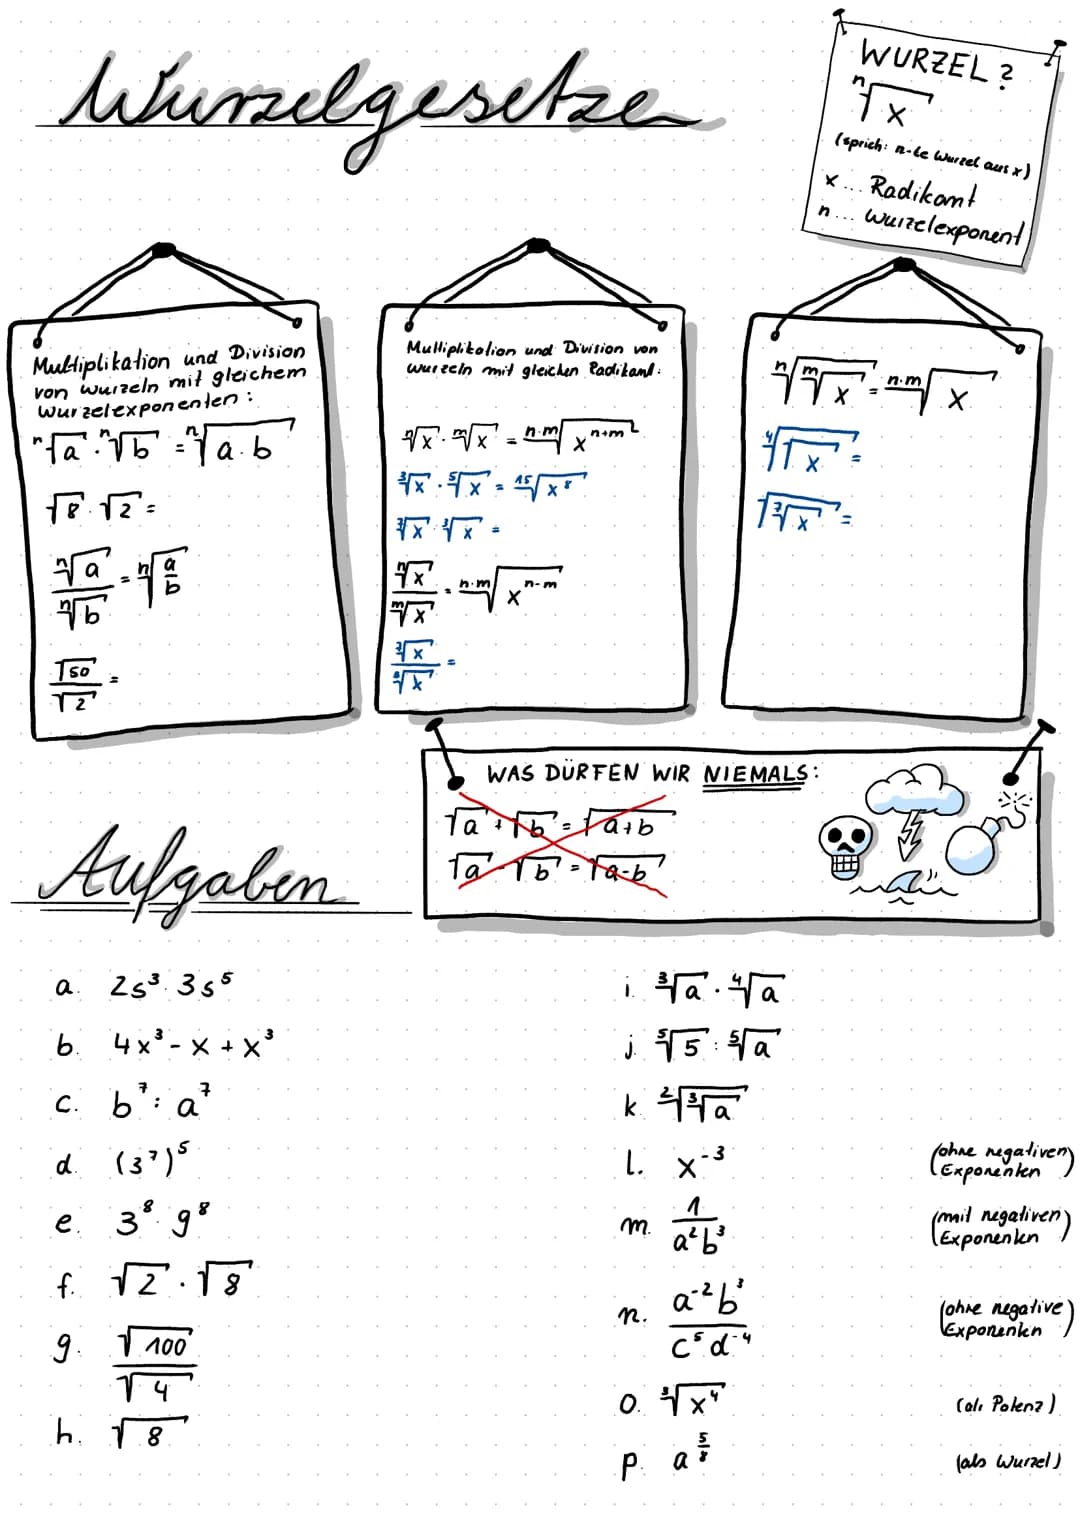 Wurzelgesetze
WURZEL?
ⁿ√x
(sprich: n-te Wurzel aus x)
x ... Radikant
n ... Wurzelexponent
Multiplikation und Division
von Wurzeln mit gleichem
Wurzelexponenten:
ⁿ√a · ⁿ√b = ⁿ√(a·b)
√8 · √2 =
ⁿ√a / ⁿ√b = ⁿ√(a/b)
√50 / √2 =
Multiplikation und Division von
Wurzeln mit gleichen Radikand:
ⁿ√x · ᵐ√x = ⁿ·ᵐ√(xⁿ⁺ᵐ)
³√x · ⁵√x = ¹⁵√(x⁸)
³√x · ³√x =
ⁿ√x / ᵐ√x = ⁿ·ᵐ√(xⁿ⁻ᵐ)
ⁿ√(ᵐ√x) = ⁿ·ᵐ√x
⁴√(√x) =
WAS DÜRFEN WIR NIEMALS:
√a + √b = √(a+b)
√a - √b = √(a-b)
Aufgaben
a. 2s³ · 3s⁵
b. 4x³ - x + x³
c. b⁷ : a⁷
d. (3⁷)⁵
e. 3⁸ · 9⁸
f. √2 · √8
g. √100 / √4
h. √8
i. ³√a · ⁴√a
j. ⁵√5 : ⁵√a
k. ²√(³√a)
l. x⁻³ (ohne negativen Exponenten)
m. 1 / (a²b³) (mit negativen Exponenten)
n. (a⁻²b³) / (c⁵d⁻⁴) (ohne negative Exponenten)
o. ³√(x⁴) (als Potenz)
p. a^(5/8) (als Wurzel)